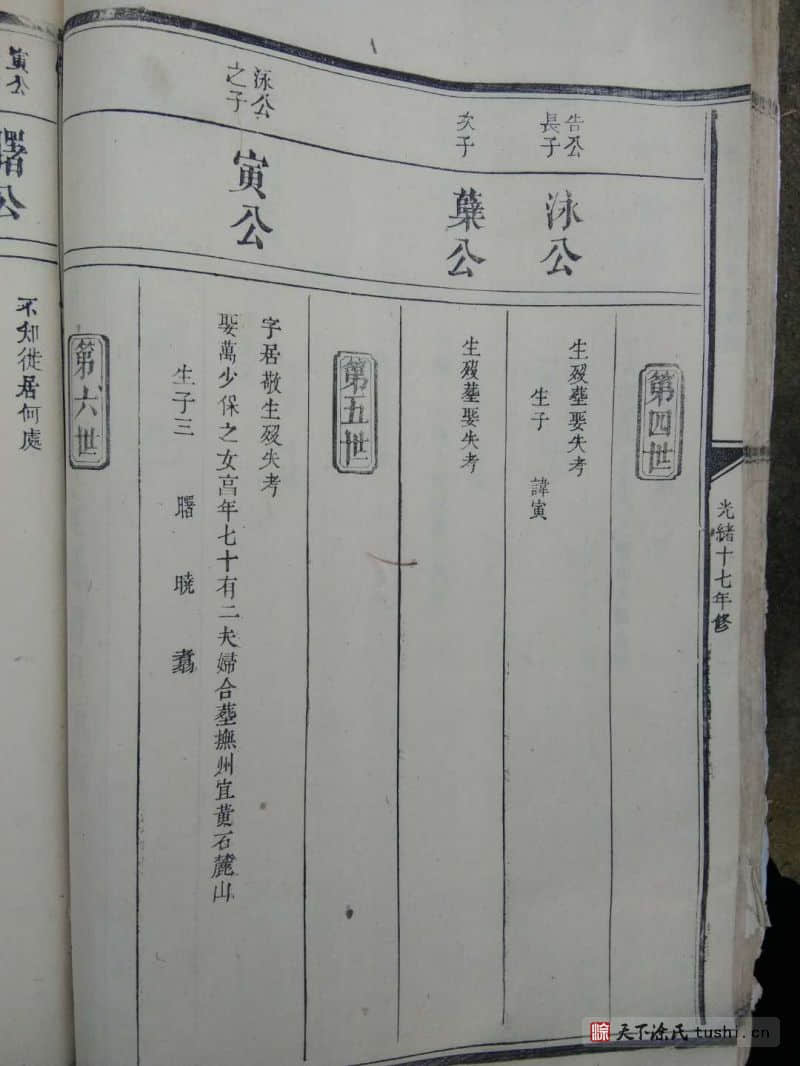 光緒十七年修
第四世
告公
長子
泳公
生歿塟娶失考
生子 諱寅
次子
葉公
生歿塟娶失考
第五世
泳公
之子
寅公
字居敬生歿失考
娶萬少保之女亯年七十有二夫婦合塟撫州宜黄石麓山
生子三 曙 曉 翥
第六世
寅公
曙公
不知徙居何處
天下涂氏 tushi.cn